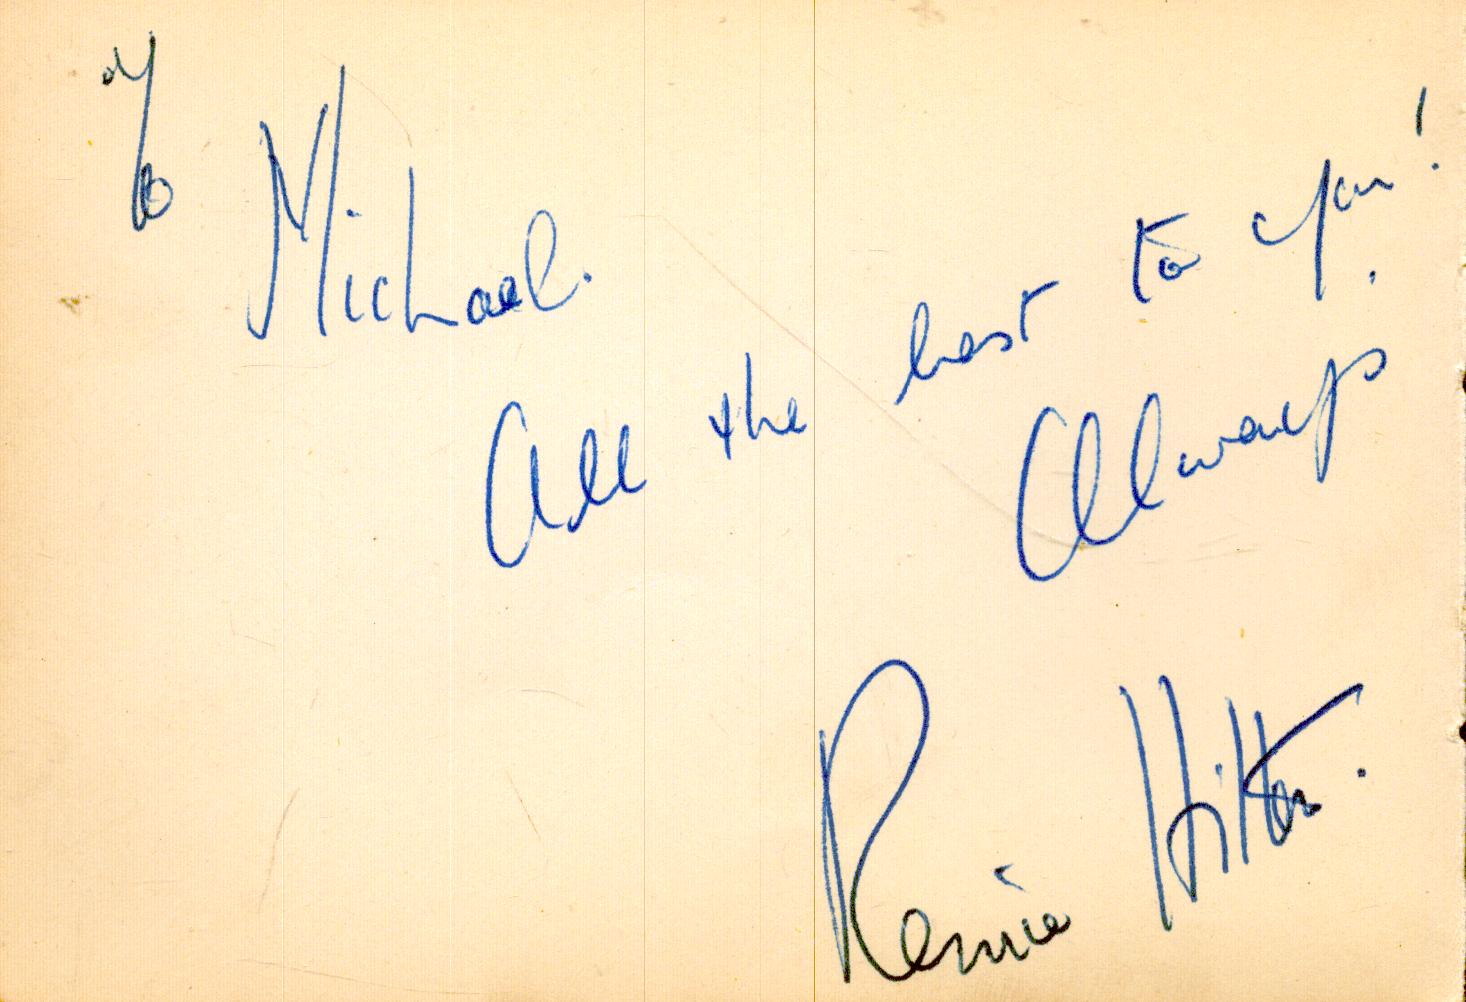 To Michael.
All the best to you!
Always
Rennie Hilton.